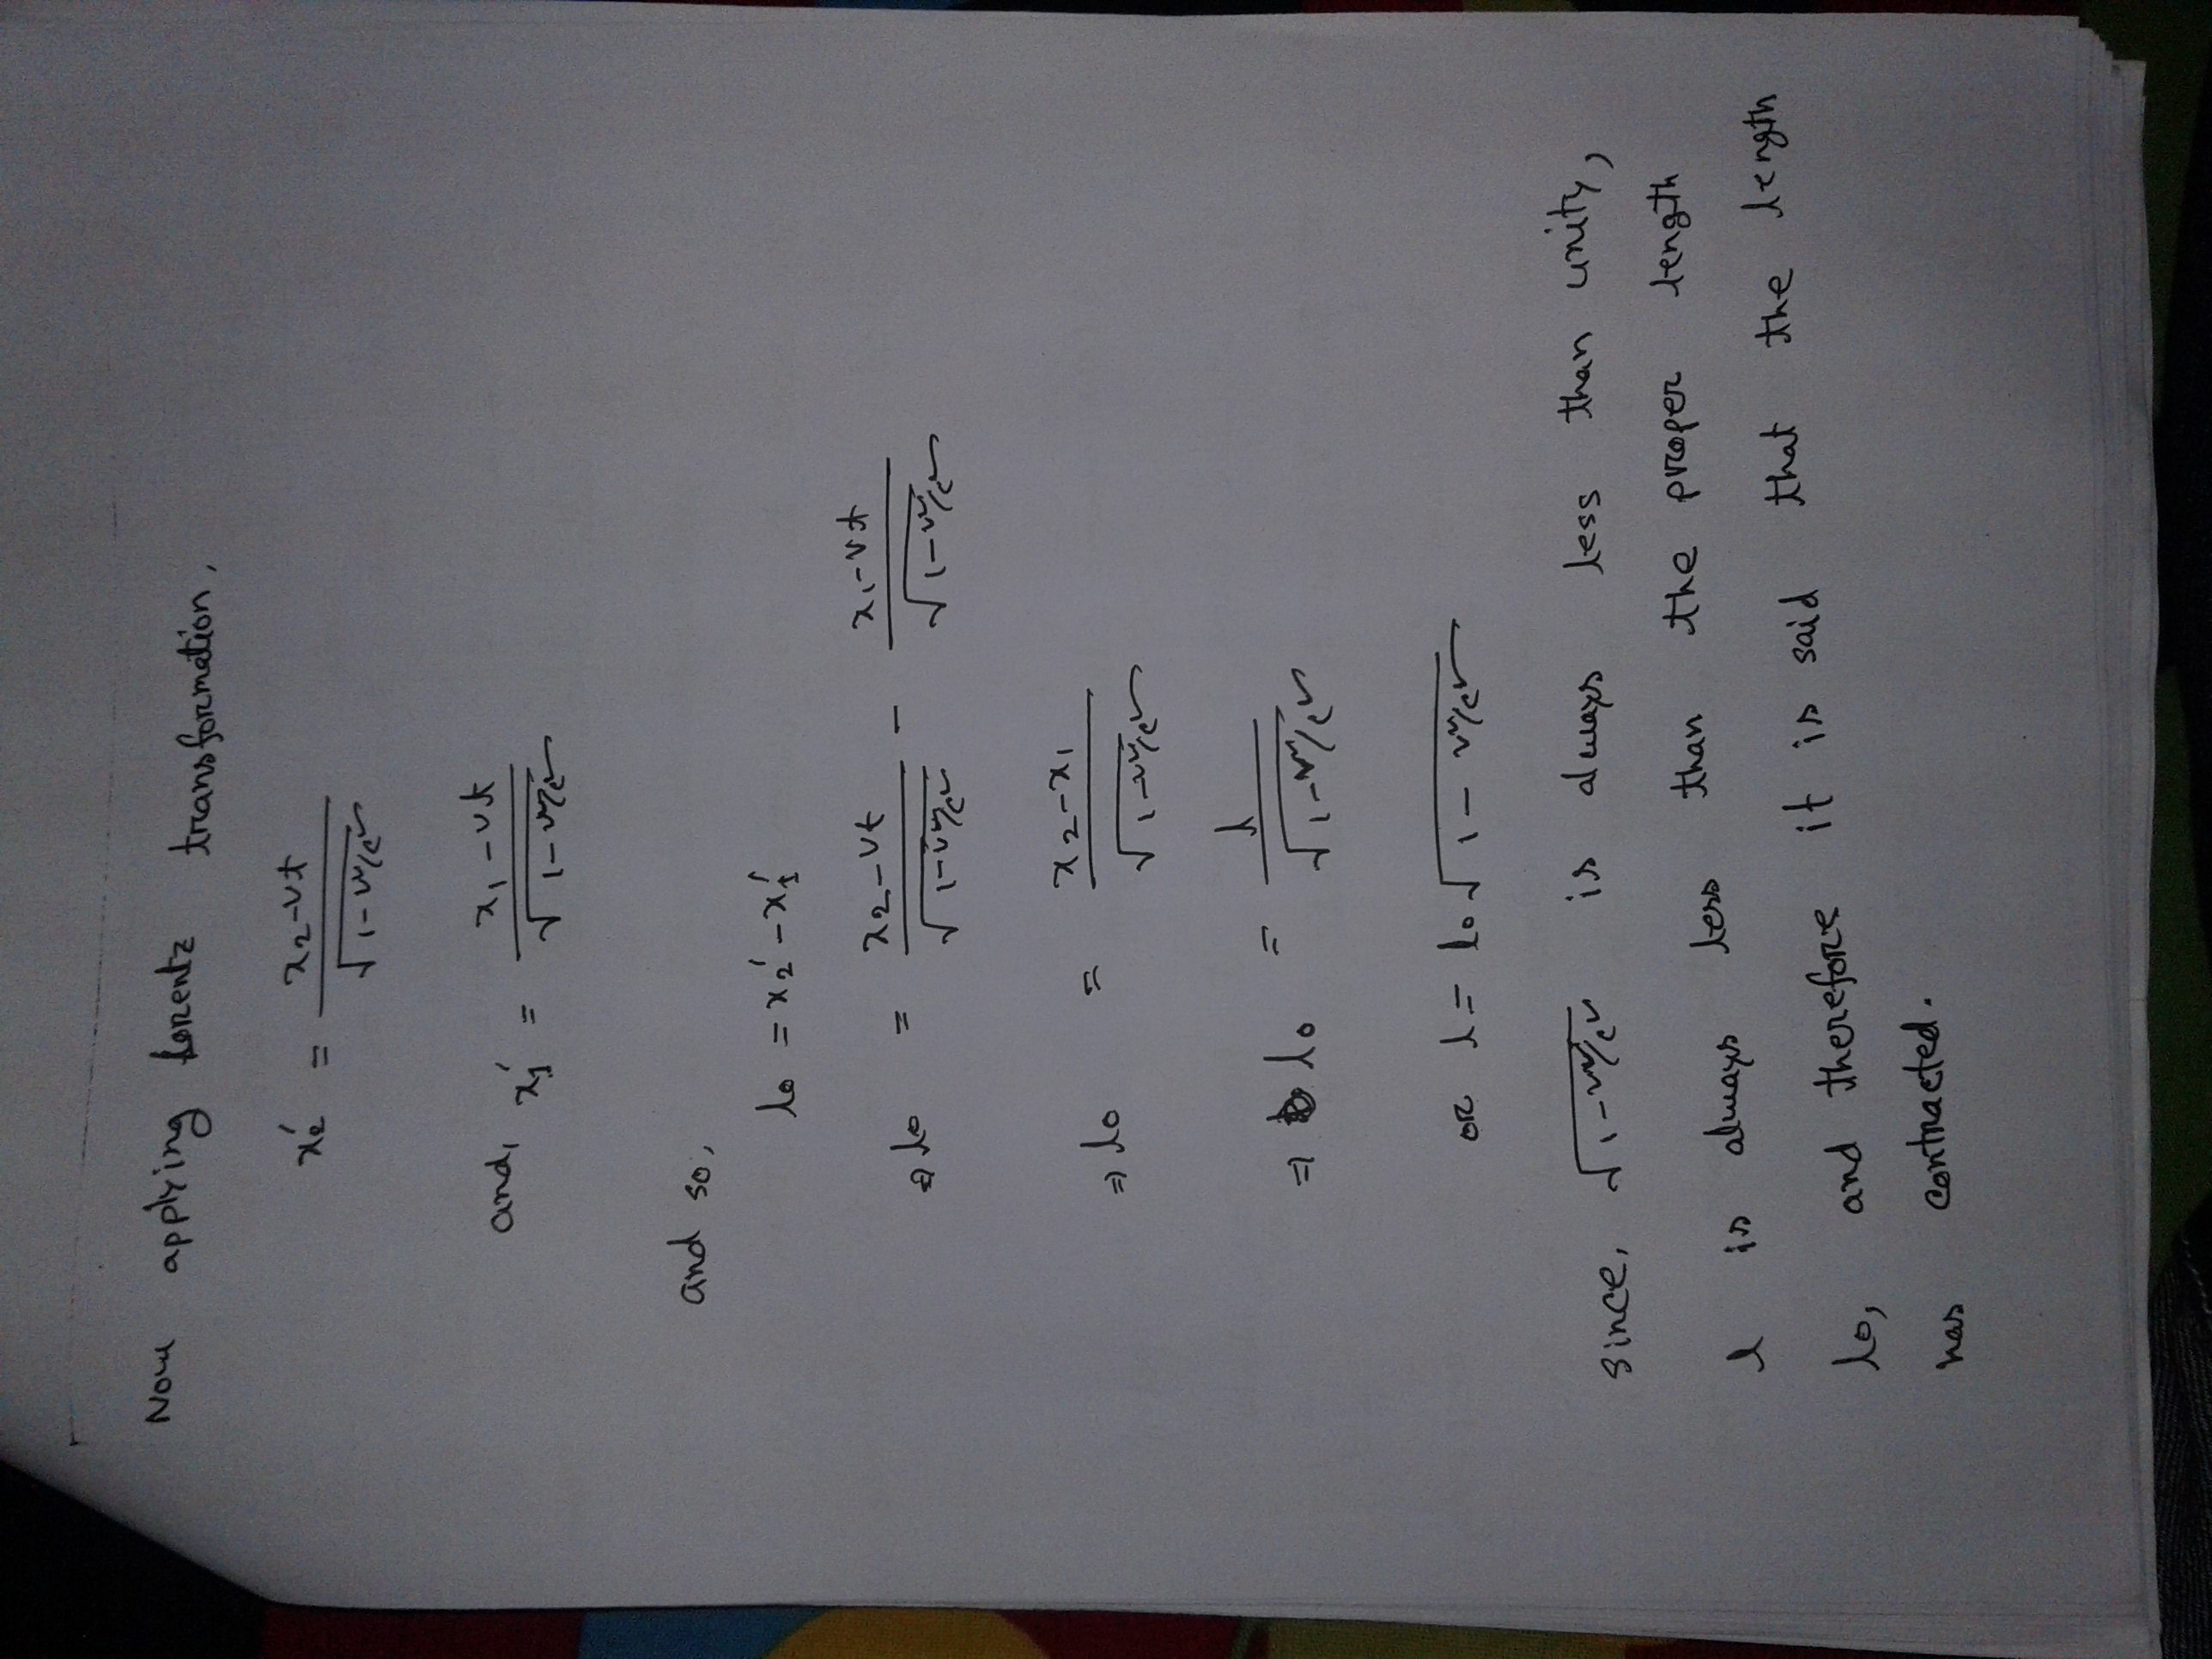 Now applying Lorentz transformation,
x₂′ = (x₂ - vt) / √(1 - v²/c²)
and, x₁′ = (x₁ - vt) / √(1 - v²/c²)
and so,
l₀ = x₂′ - x₁′
⇒ l₀ = (x₂ - vt) / √(1 - v²/c²) - (x₁ - vt) / √(1 - v²/c²)
⇒ l₀ = (x₂ - x₁) / √(1 - v²/c²)
⇒ l₀ = l / √(1 - v²/c²)
or l = l₀ √(1 - v²/c²)
since, √(1 - v²/c²) is always less than unity,
l is always less than the proper length
l₀, and therefore it is said that the length
has contracted.